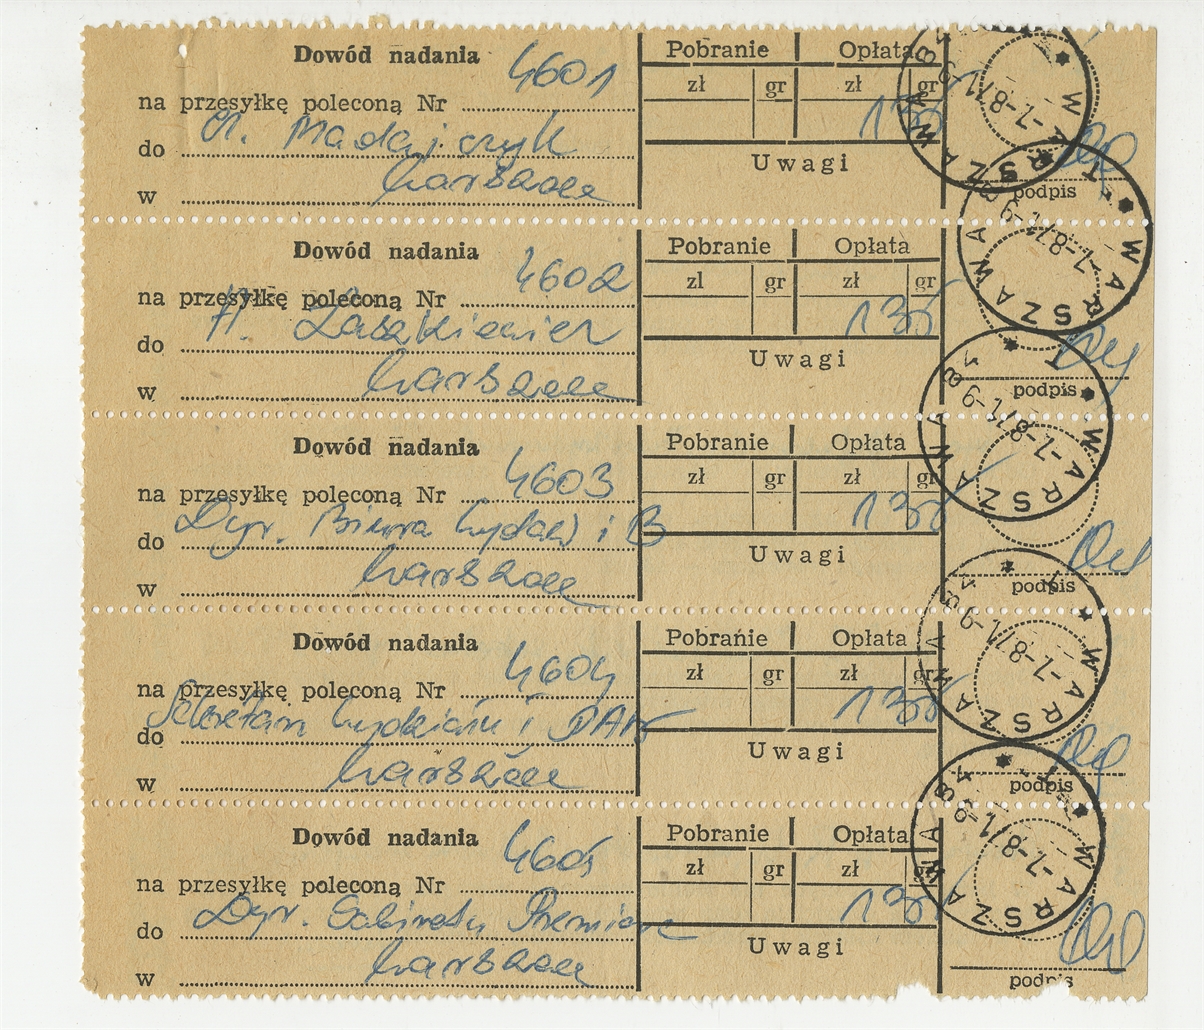 Dowód nadania 4601
na przesyłkę poleconą Nr
do Cz. Madajczyk
w Warszawa
Pobranie Opłata
zł gr zł gr
135
Uwagi
podpis
WARSZAWA 84
Dowód nadania 4602
na przesyłkę poleconą Nr
do
w Warszawa
Pobranie Opłata
zl gr zł gr
135
Uwagi
podpis
WARSZAWA
Dowód nadania 4603
na przesyłkę poleconą Nr
do Dyr. Biura i B
w Warszawa
Pobranie Opłata
zł gr zł gr
135
Uwagi
podpis
WARSZAWA 84
Dowód nadania 4604
na przesyłkę poleconą Nr
do Sekretarz Wydziału I PAN
w Warszawa
Pobranie Opłata
zł gr zł gr
135
Uwagi
podpis
WARSZAWA 84
Dowód nadania 4605
na przesyłkę poleconą Nr
do Dyr. Gabinetu Premiera
w Warszawa
Pobranie Opłata
zł gr zł gr
135
Uwagi
podpis
WARSZAWA 84